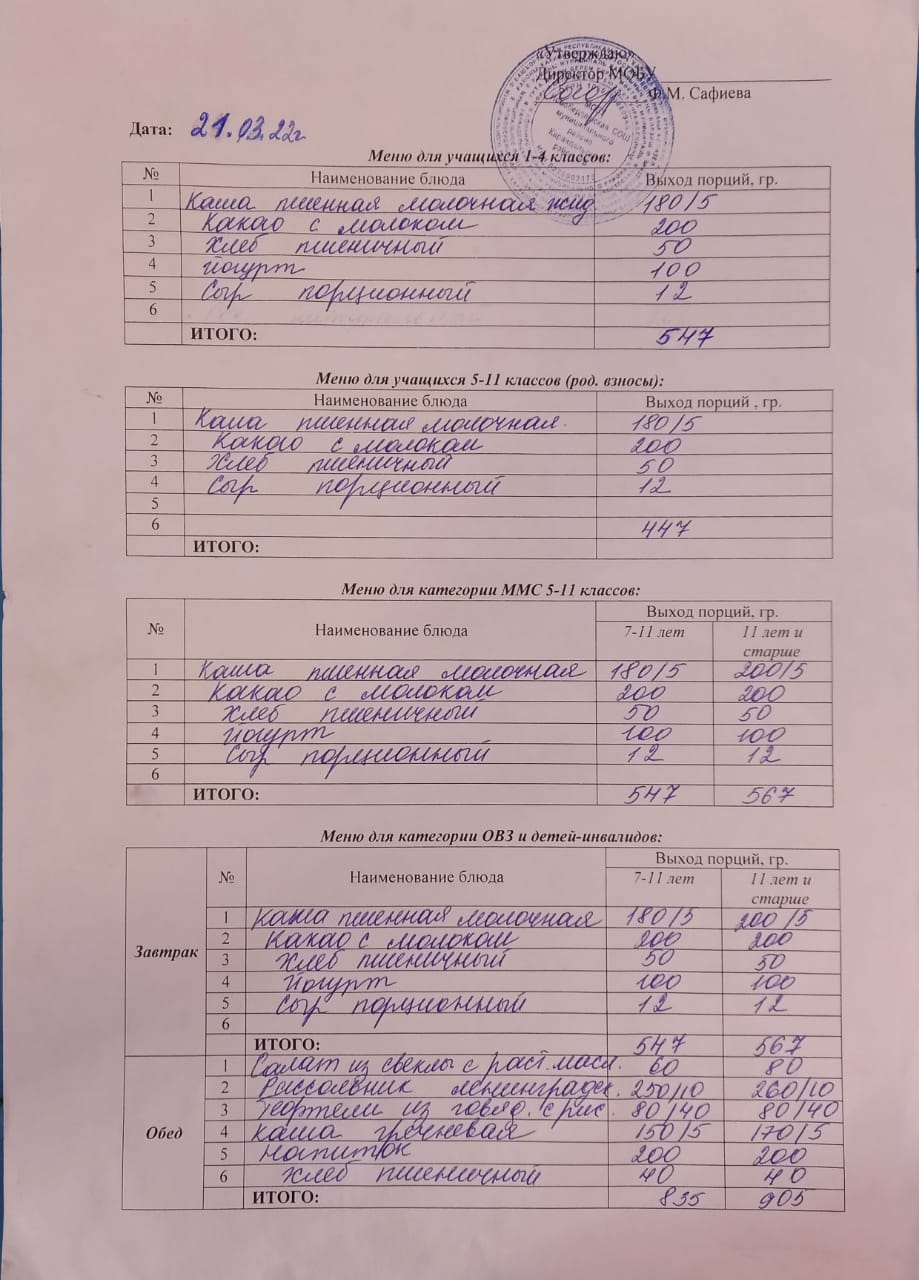 «Утверждаю»
Директор МОБУ
Ф.М. Сафиева
Дата: 21.03.22г.
Меню для учащихся 1-4 классов:
№ Наименование блюда Выход порций, гр.
1 Каша пшенная молочная жид 180/5
2 Какао с молоком 200
3 Хлеб пшеничный 50
4 Йогурт 100
5 Сыр порционный 12
6
ИТОГО: 547
Меню для учащихся 5-11 классов (род. взносы):
№ Наименование блюда Выход порций , гр.
1 Каша пшенная молочная. 180/5
2 Какао с молоком 200
3 Хлеб пшеничный 50
4 Сыр порционный 12
5
6 447
ИТОГО:
Меню для категории ММС 5-11 классов:
№ Наименование блюда Выход порций, гр.
7-11 лет 11 лет и
старше
1 Каша пшенная молочная 180/5 200/5
2 Какао с молоком 200 200
3 Хлеб пшеничный 50 50
4 Йогурт 100 100
5 Сыр порционный 12 12
6
ИТОГО: 547 567
Меню для категории ОВЗ и детей-инвалидов:
№ Наименование блюда Выход порций, гр.
7-11 лет 11 лет и
старше
Завтрак
1 Каша пшенная молочная 180/5 200/5
2 Какао с молоком 200 200
3 Хлеб пшеничный 50 50
4 Йогурт 100 100
5 Сыр порционный 12 12
6
ИТОГО: 547 567
Обед
1 Салат из свеклы с раст. масл. 60 80
2 Рассольник ленинградск. 250/10 260/10
3 Тефтели из говяд. с рис. 80/40 80/40
4 Каша гречневая 150/5 170/5
5 Напиток 200 200
6 Хлеб пшеничный 40 40
ИТОГО: 835 905